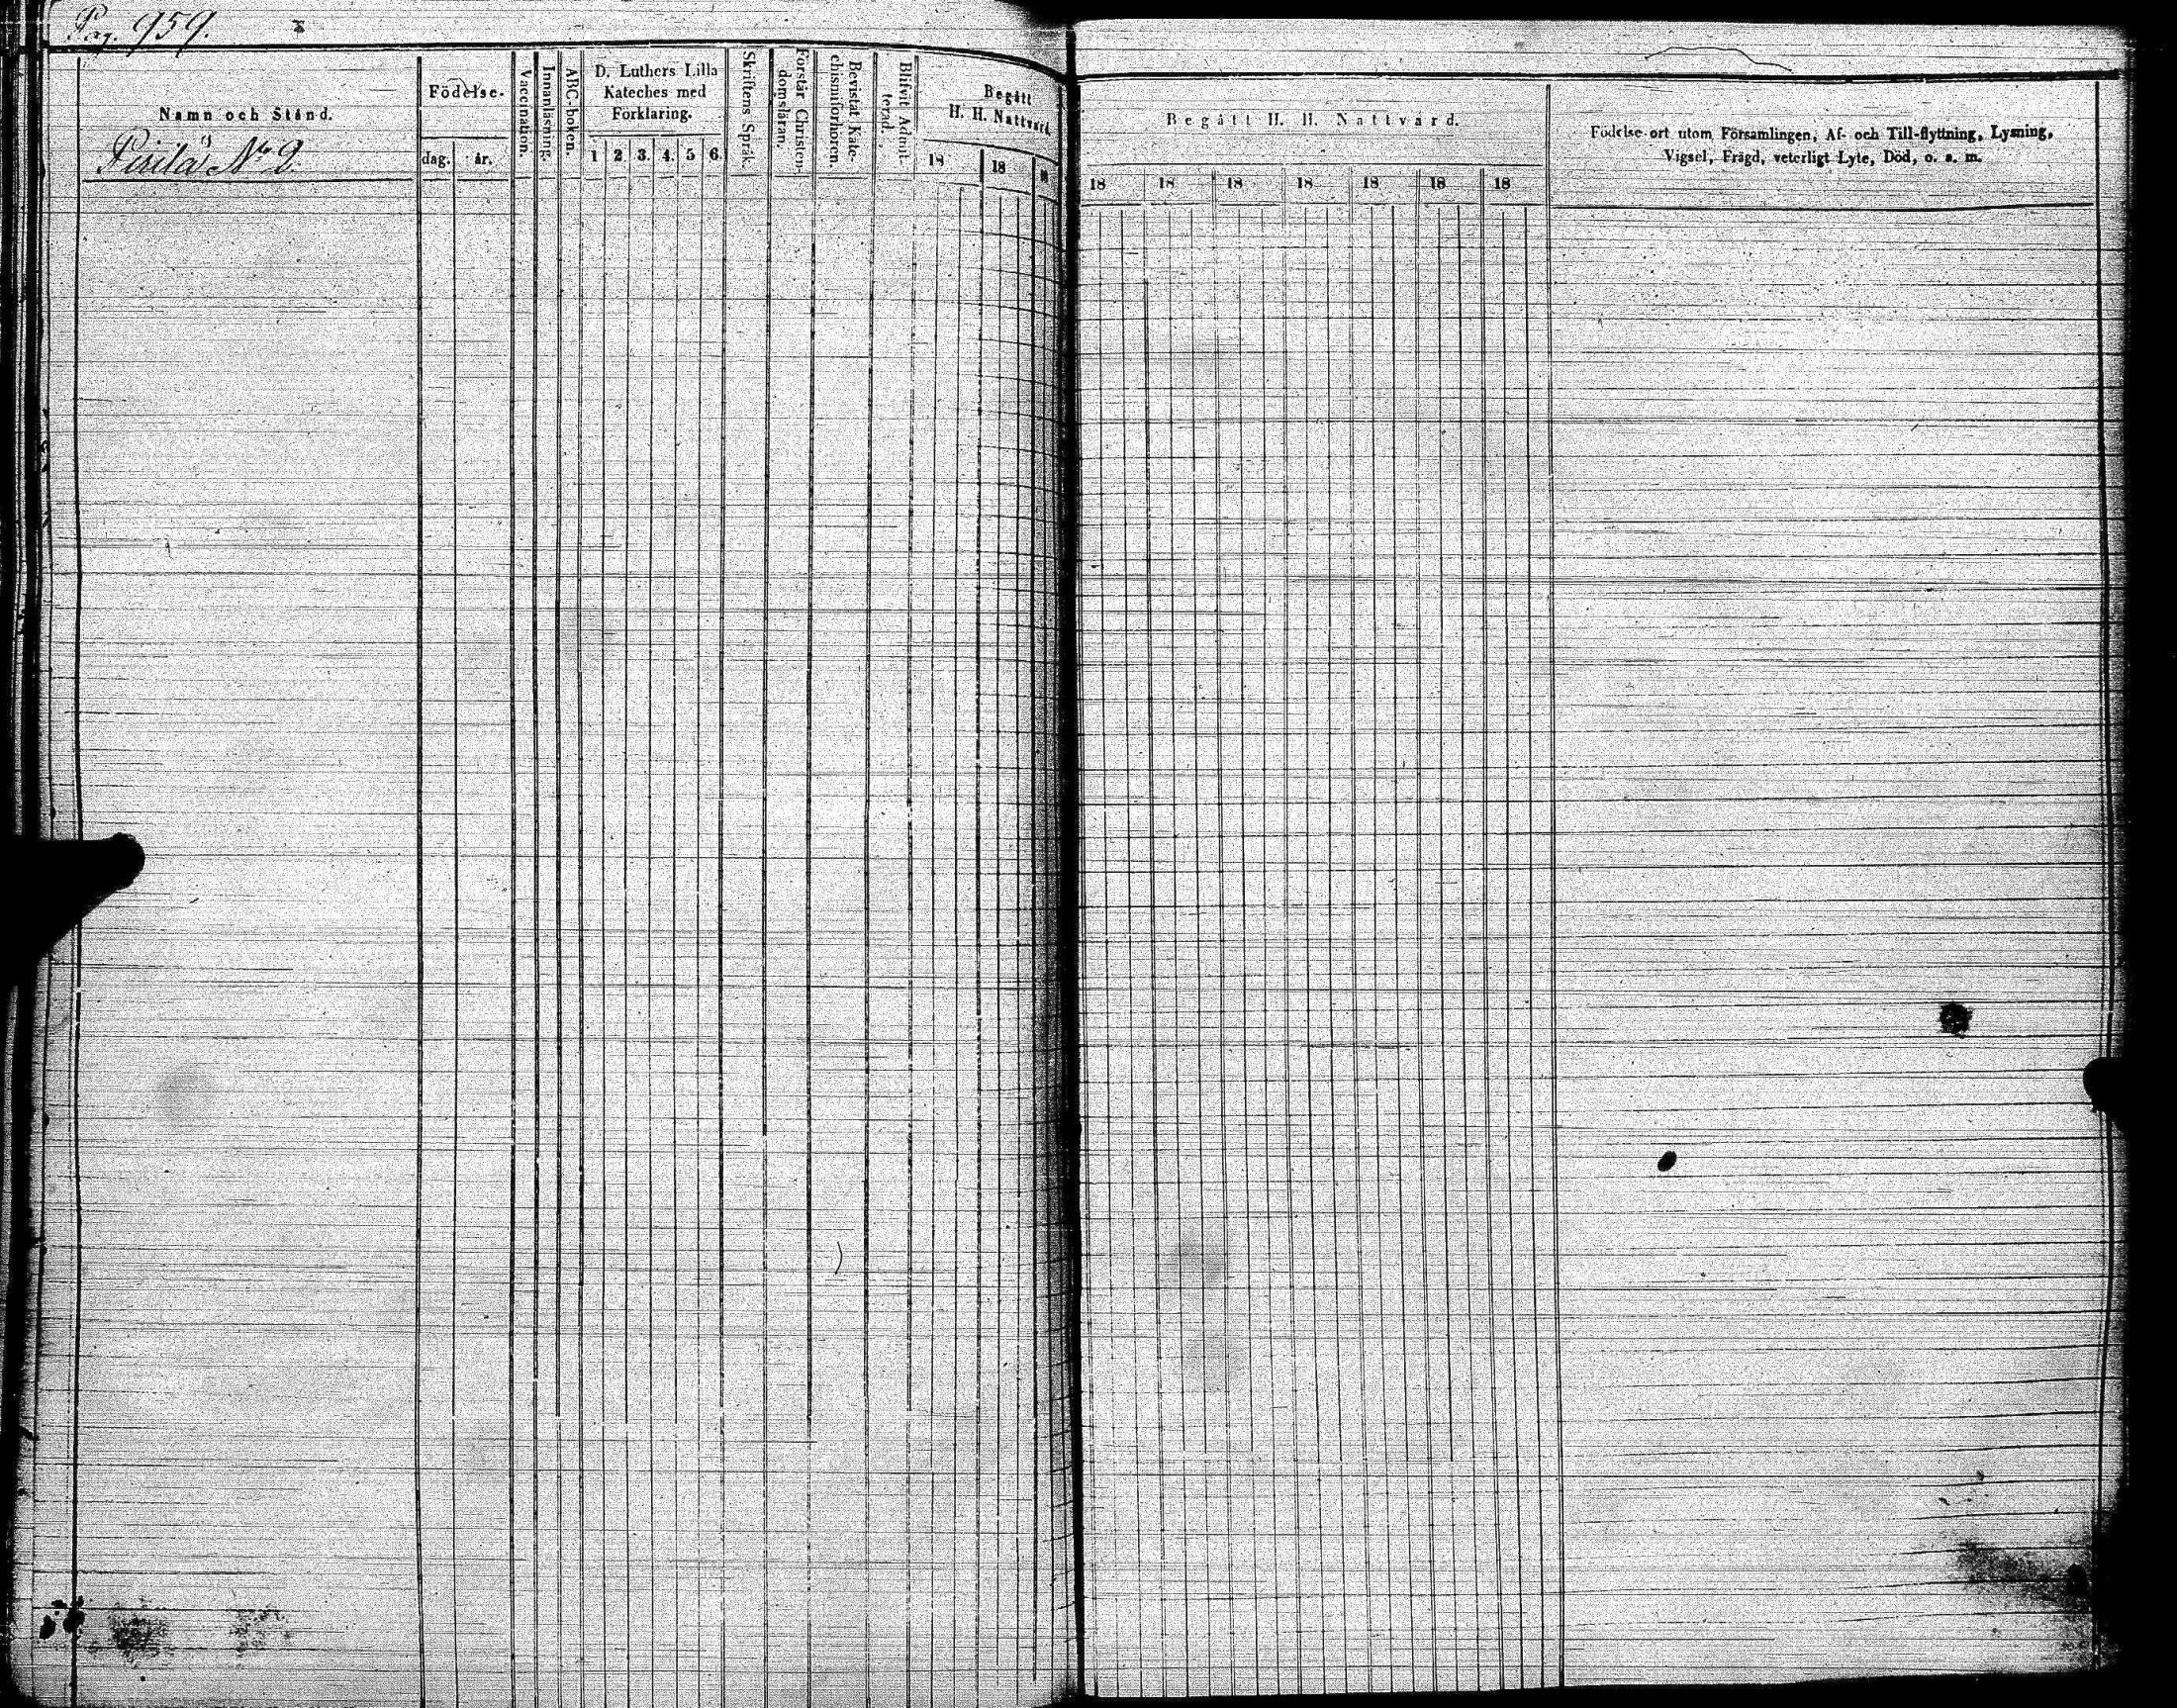 Pag. 959.
Namn och Stånd.
Födelse-
dag. år.
Vaccination.
Innanläsning.
ABC-boken.
D. Luthers Lilla
Kateches med
Förklaring.
1 2. 3. 4. 5 6.
Skriftens Språk.
Förstår Christen-
domsläran.
Bevistat Kate-
chismiförhören.
Blifvit Admit-
terad.
Begått
H. H. Nattvard.
18 18
Begått H. H. Nattvard.
18 18 18 18 18 18 18
Födelse-ort utom Församlingen, Af- och Till-flyttning, Lysning,
Vigsel, Frägd, veterligt Lyte, Död, o. s. m.
No 2.